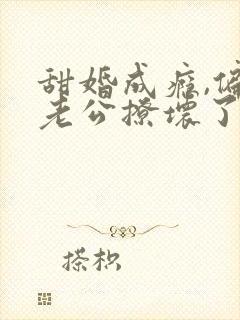 甜婚成瘾,偏
老公撩坏了
搽枳